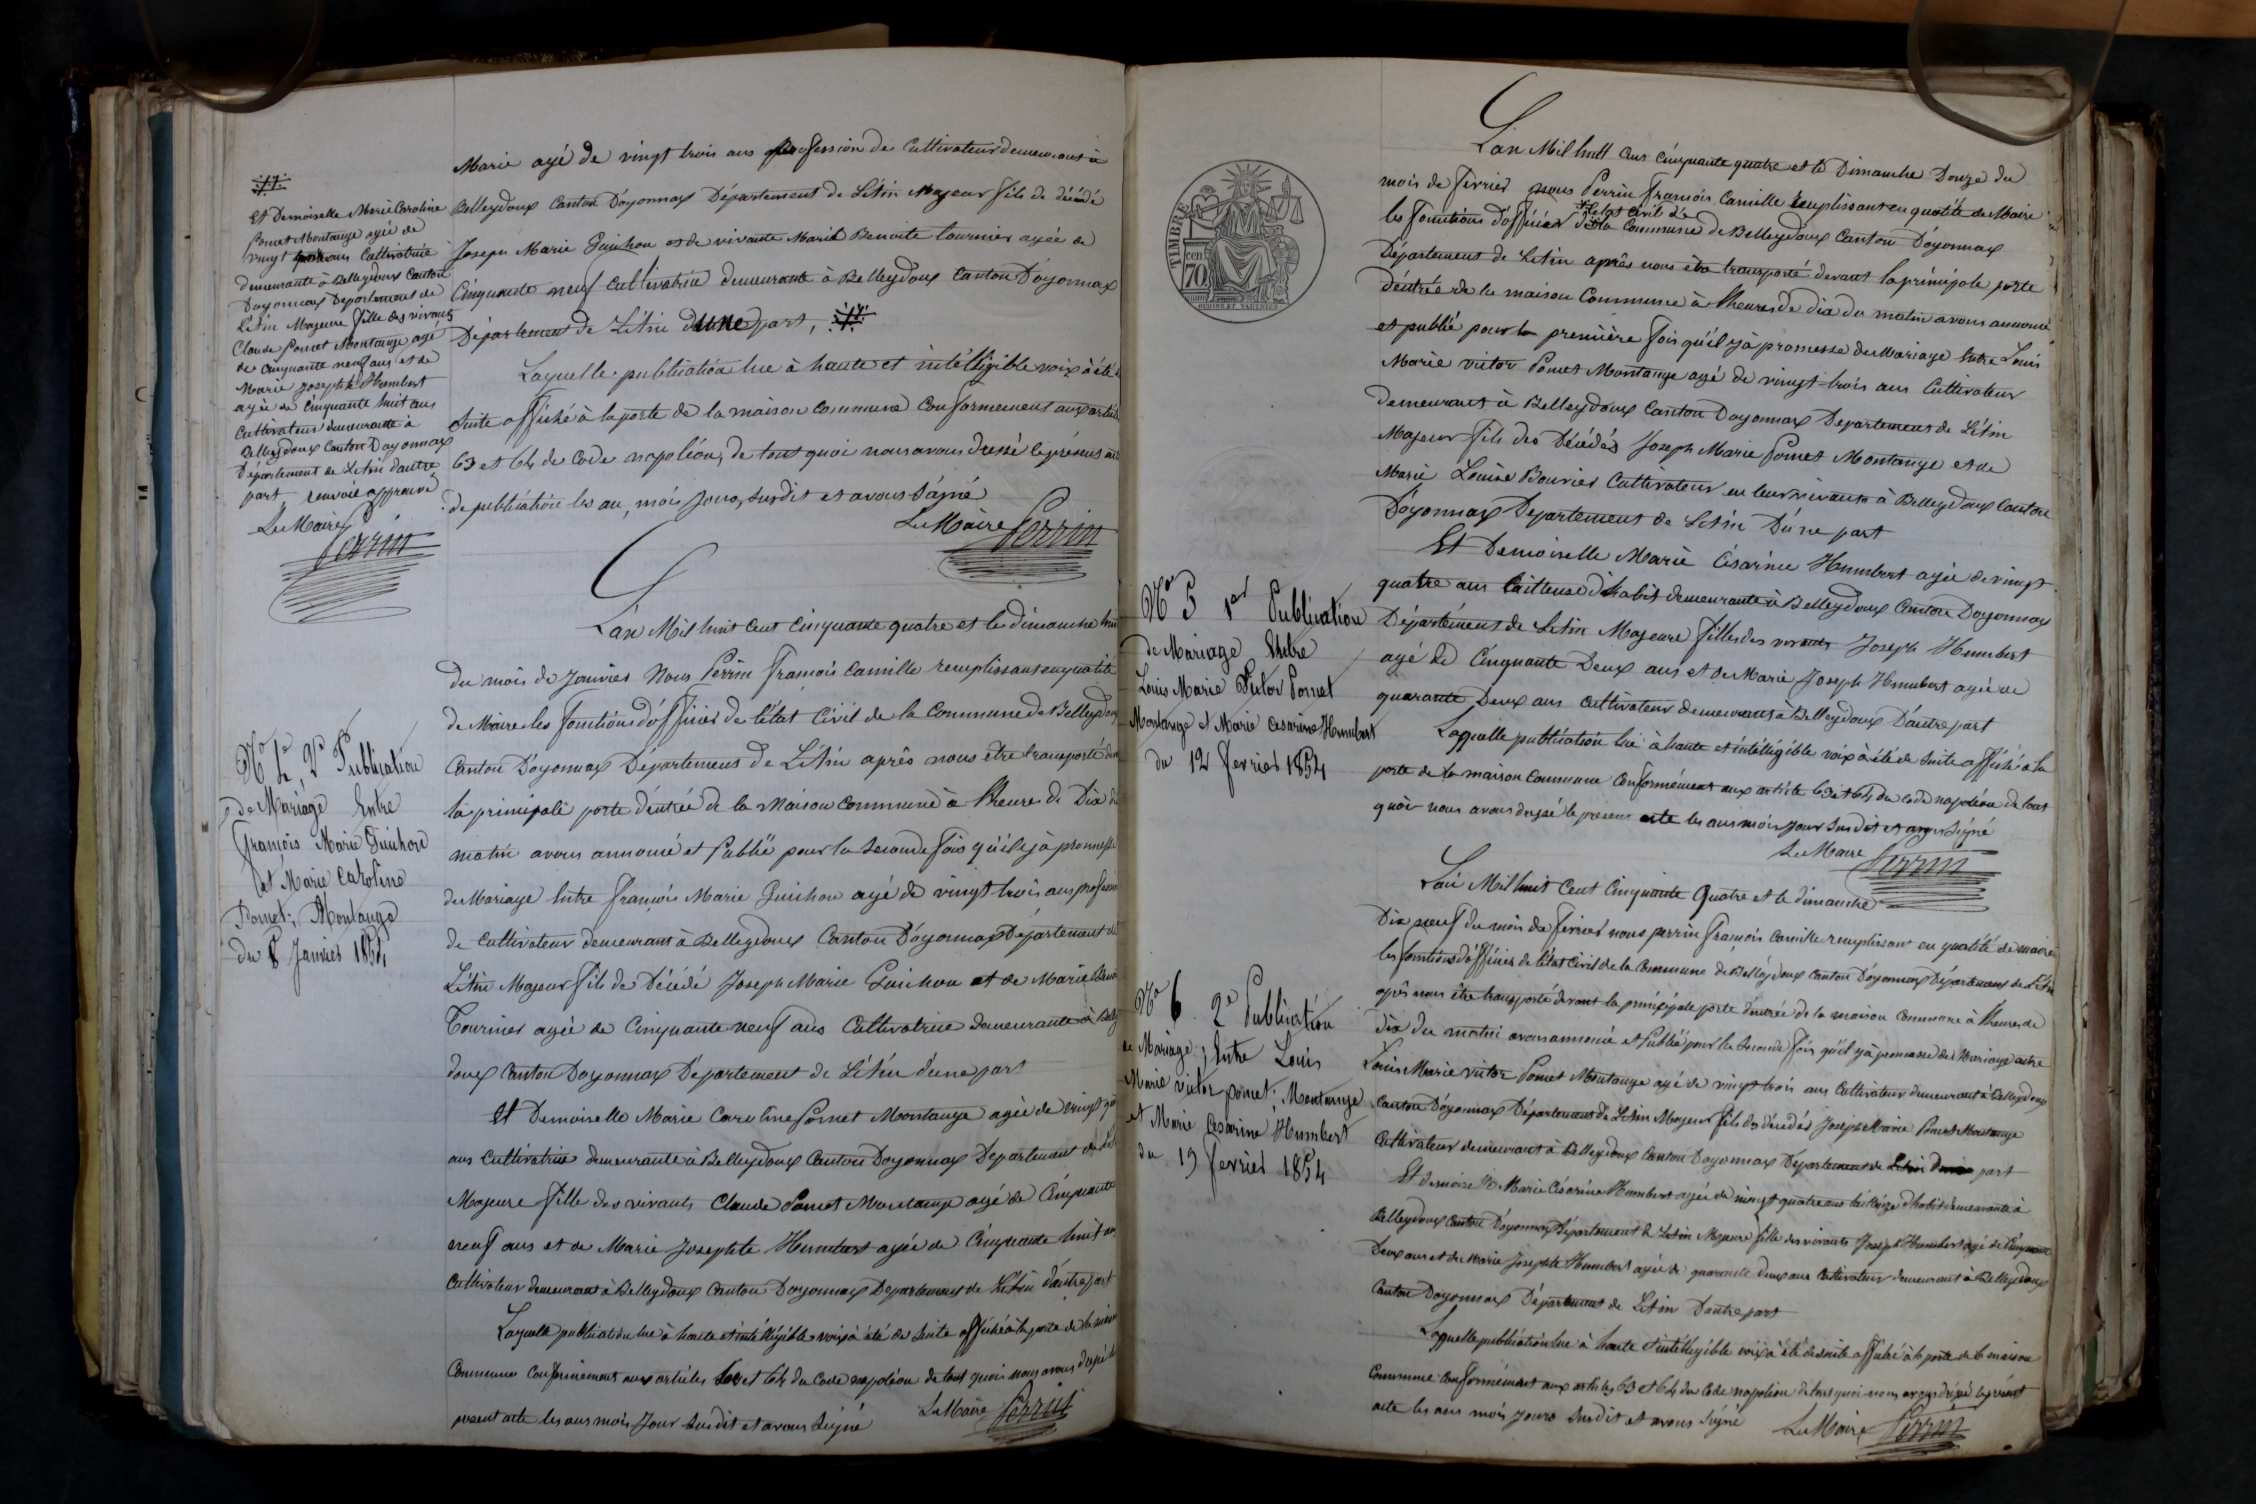 Marie agé de vingt trois ans profession de Cultivateur demeurant à
Belleydoux Canton D'oyonnax Département de L'étin Majeur fils de décédé
Joseph Marie Guichon et de vivante Marie Benoite tournier agée de
Cinquante neuf Cultivatrice demeurante à Belleydoux Canton D'oyonnax
Département de L'étin d'une part,
Laquelle publication lue à haute et intélligible voix à été de
Suite affiché à la porte de la maison Commune Conformement aux articles
63 et 64 de Code napoléon, de tout quoi nous avons dressé le présent acte
de publication les an, mois jours, susdit et avons Signé
Le Maire Perrin
Et Demoiselle Marie Caroline
Pomet Montange agée de
vingt ans Cultivatrice
demeurante à Belleydoux Canton
D'oyonnax Departement de
L'étin Majeure fille des vivants
Claude Pomet Montange agé
de Cinquante neuf ans et de
Marie Josephte Humbert
agée de Cinquante huit ans
Cultivateur demeurante à
Belleydoux Canton D'oyonnax
Département de L'étin d'autre
part renvoie approuvé
Le Maire
Perrin
L'an Mil huit Cent Cinquante quatre et le dimanche huit
du mois de Janvier Nous Perrin françois Camille remplissant en qualité
de Maire les fonctions d'officier de l'état Civil de la Commune de Belleydoux
Canton D'oyonnax Département de L'étin après nous être transporté devant
la principale porte d'entrée de la Maison Commune à l'heure de Dix du
matin avons annoncé et Publié pour la Seconde fois qu'il y à promesse
de Mariage Entre françois Marie Guichon agé de vingt trois ans profession
de Cultivateur demeurant à Belleydoux Canton D'oyonnax Département de
L'étin Majeur fils de Décédé Joseph Marie Guichon et de Marie Benoite
Tournier agée de Cinquante neuf ans Cultivatrice demeurante à Belley
doux Canton D'oyonnax Département de L'étin d'une part
Et Demoiselle Marie Caroline Pomet Montange agée de vingt
ans Cultivatrice demeurante à Belleydoux Canton D'oyonnax Departement de L'étin
Majeure fille des vivants Claude Pomet Montange agé de Cinquante
neuf ans et de Marie Josephte Humbert agée de Cinquante huit ans
Cultivateur demeurant à Belleydoux Canton D'oyonnax Departement de L'étin d'autre part
Laquelle publication lue à haute et intélligible voix à été de Suite affiché à la porte de la maison
Commune Conformement aux articles 63 et 64 du Code napoléon de tout quoi nous avons dressé le
present acte les ans mois Jour Susdit et avons Signé Le Maire Perrin
No 4, 2e Publication
de Mariage Entre
François Marie Guichon
et Marie Caroline
Pomet; Montange
du 8 Janvier 1854
TIMBRE
cen
70
L'an Mil huit Cent Cinquante quatre et le Dimanche Douze du
mois de fevrier nous Perrin françois Camille remplissant en qualité de Maire
les fonctions d'officier de l'état Civil de la Commune de Belleydoux Canton D'oyonnax
Département de L'étin après nous être transporté devant la principale porte
d'entrée de la maison Commune à l'heure de dix du matin avons annoncé
et publié pour la première fois qu'il y à promesse de Mariage Entre Louis
Marie victor Pomet Montange agé de vingt trois ans Cultivateur
demeurant à Belleydoux Canton D'oyonnax Departement de L'étin
Majeur fils des Décédés Joseph Marie Pomet Montange et de
Marie Louise Bouvier Cultivateur en leur vivant à Belleydoux Canton
D'oyonnax Departement de L'étin D'une part
Et Demoiselle Marie Césarine Humbert agée de vingt
quatre ans tailleuse d'habit demeurante à Belleydoux Canton D'oyonnax
Département de L'étin Majeure fille des vivants Joseph Humbert
agé de Cinquante Deux ans et de Marie Joseph Humbert agée de
quarante Deux ans Cultivateur demeurant à Belleydoux D'autre part
Laquelle publication lue à haute et intélligible voix à été de Suite affiché à la
porte de la maison Commune Conformément aux article 63 et 64 du Code napoléon de tout
quoi nous avons dressé le present acte les ans mois Jour Susdit et avons Signé
Le Maire Perrin
No 5 1er Publication
de Mariage Entre
Louis Marie Victor Pomet
Montange et Marie Cesarine Humbert
du 12 fevrier 1854
L'an Mil huit Cent Cinquante Quatre et le dimanche
Dix neuf du mois de fevrier nous perrin françois Camille remplissant en qualité de maire
les fonctions d'officier de l'état Civil de la Commune de Belleydoux Canton D'oyonnax Département de L'étin
après nous être transporté devant la principale porte d'entrée de la maison Commune à l'heure de
dix du matin avons annoncé et Publié pour la Seconde fois qu'il y à promesse de Mariage entre
Louis Marie victor Pomet Montange agé de vingt trois ans Cultivateur demeurant à Belleydoux
Canton D'oyonnax Département de L'étin Majeur fils des décédés Joseph Marie Pomet Montange
Cultivateur demeurant à Belleydoux Canton D'oyonnax Département de L'étin D'une part
Et demoiselle Marie Césarine Humbert agée de vingt quatre ans d'habit demeurante à
Belleydoux Canton D'oyonnax Département de L'étin Majeure fille des vivants Joseph Humbert agé de Cinquante
Deux ans et de Marie Josephte Humbert agée de quarante deux ans Cultivateur demeurant à Belleydoux
Canton D'oyonnax Département de L'étin D'autre part
Laquelle publication lue à haute et intélligible voix à été de suite affiché à la porte de la maison
Commune Conformément aux articles 63 et 64 du Code napoléon de tout quoi nous avons dressé le présent
acte les ans mois Jours Susdit et avons Signé Le Maire Perrin
No 6. 2e Publication
de Mariage; Entre Louis
Marie victor pomet; Montange
et Marie Césarine Humbert
du 19 fevrier 1854